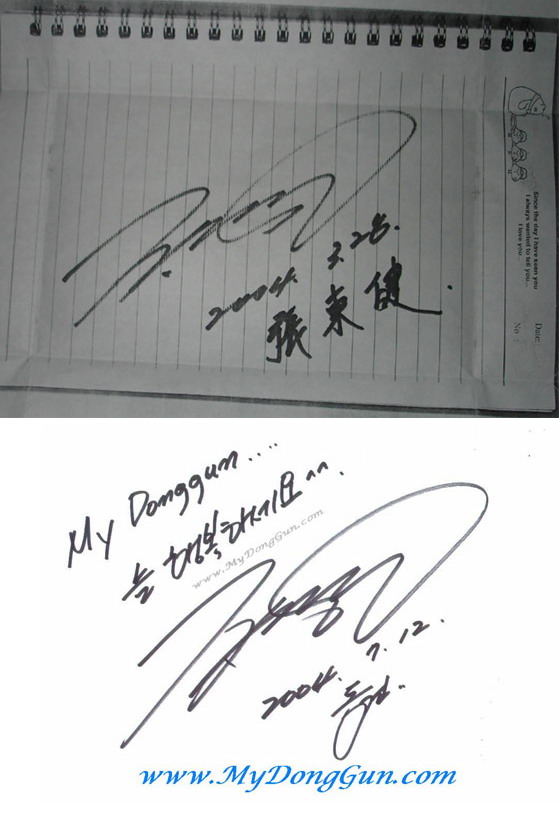 Since the day I have seen you
I always wanted to tell you...
I love you...
Date:
No :
2004. 3. 28.
張東健.
My Donggun....
늘 행복하세요^^.
www.MyDongGun.com
2004. 7. 12.
www.MyDongGun.com